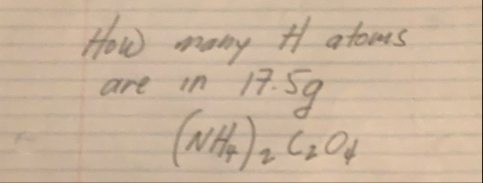 How many H atoms
are in 17.5g
(NH₄)₂ C₂O₄